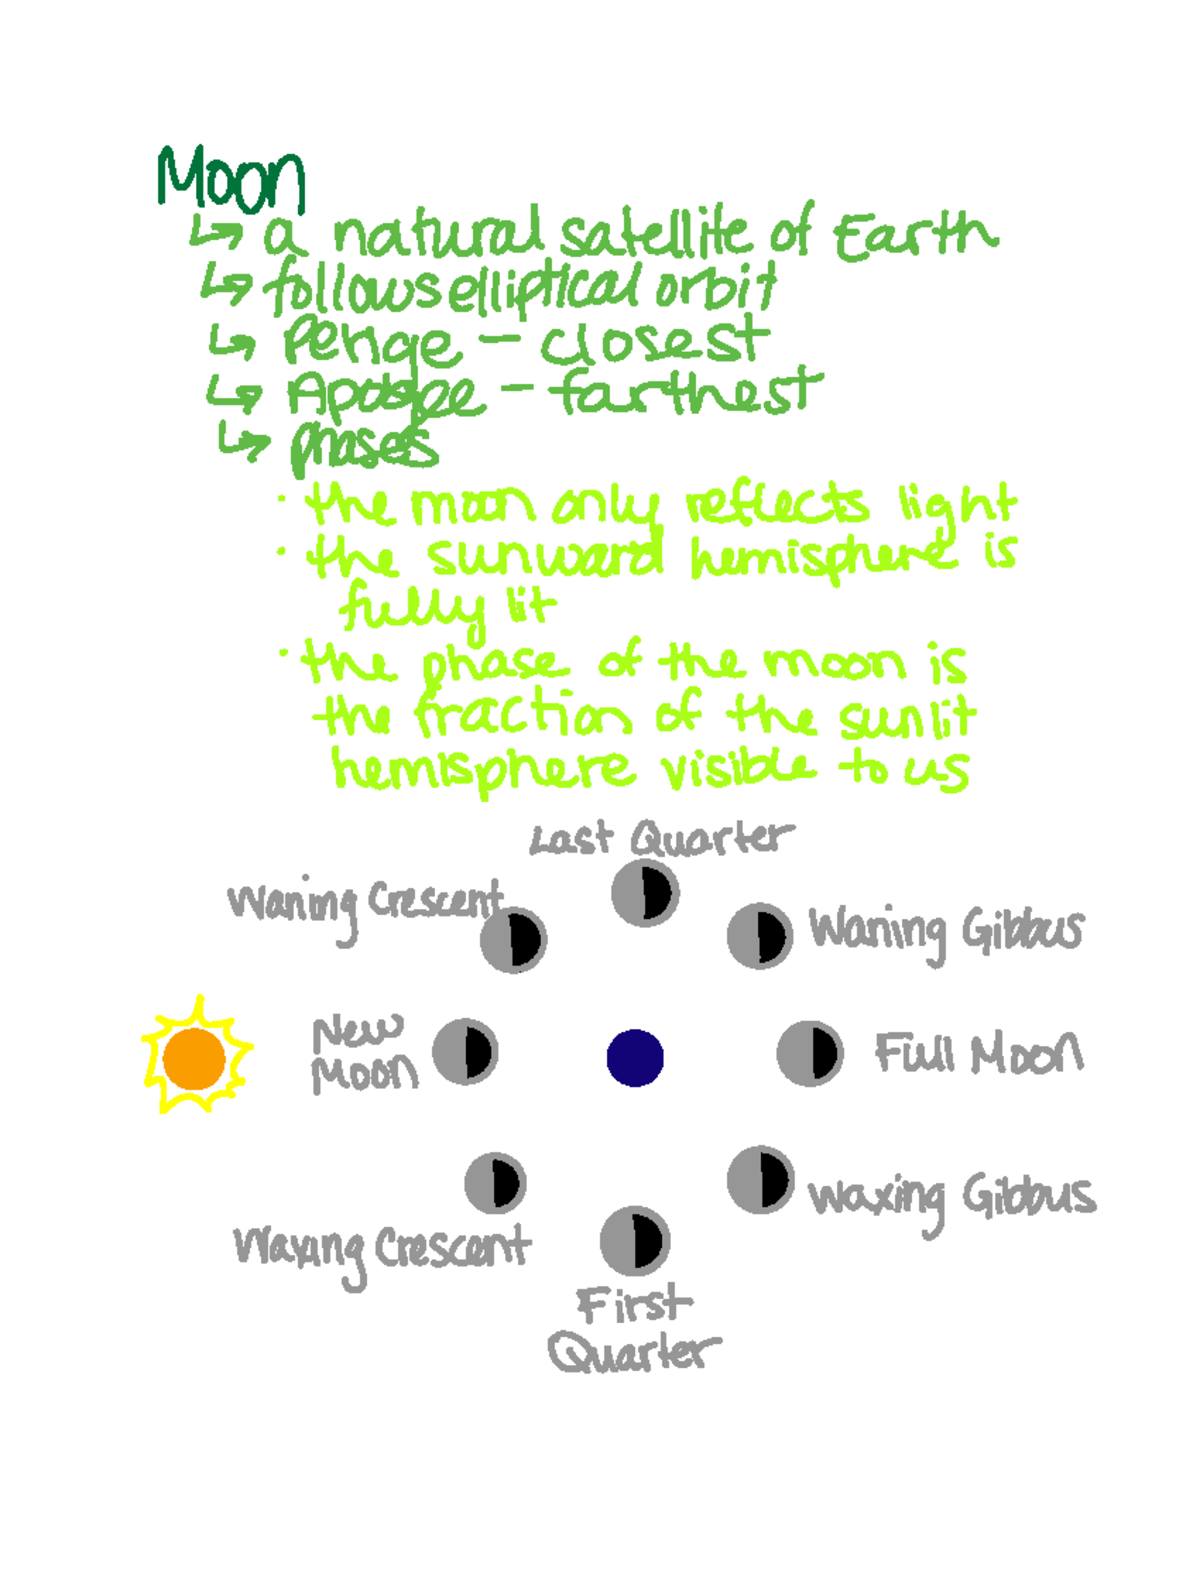 Moon
↳ a natural satellite of Earth
↳ follows elliptical orbit
↳ Perige - closest
↳ Apogee - farthest
↳ phases
· the moon only reflects light
· the sunward hemisphere is
fully lit
· the phase of the moon is
the fraction of the sunlit
hemisphere visible to us
Last Quarter
Waning Crescent
Waning Gibbus
New
Moon
Full Moon
Waxing Gibbus
Waxing Crescent
First
Quarter